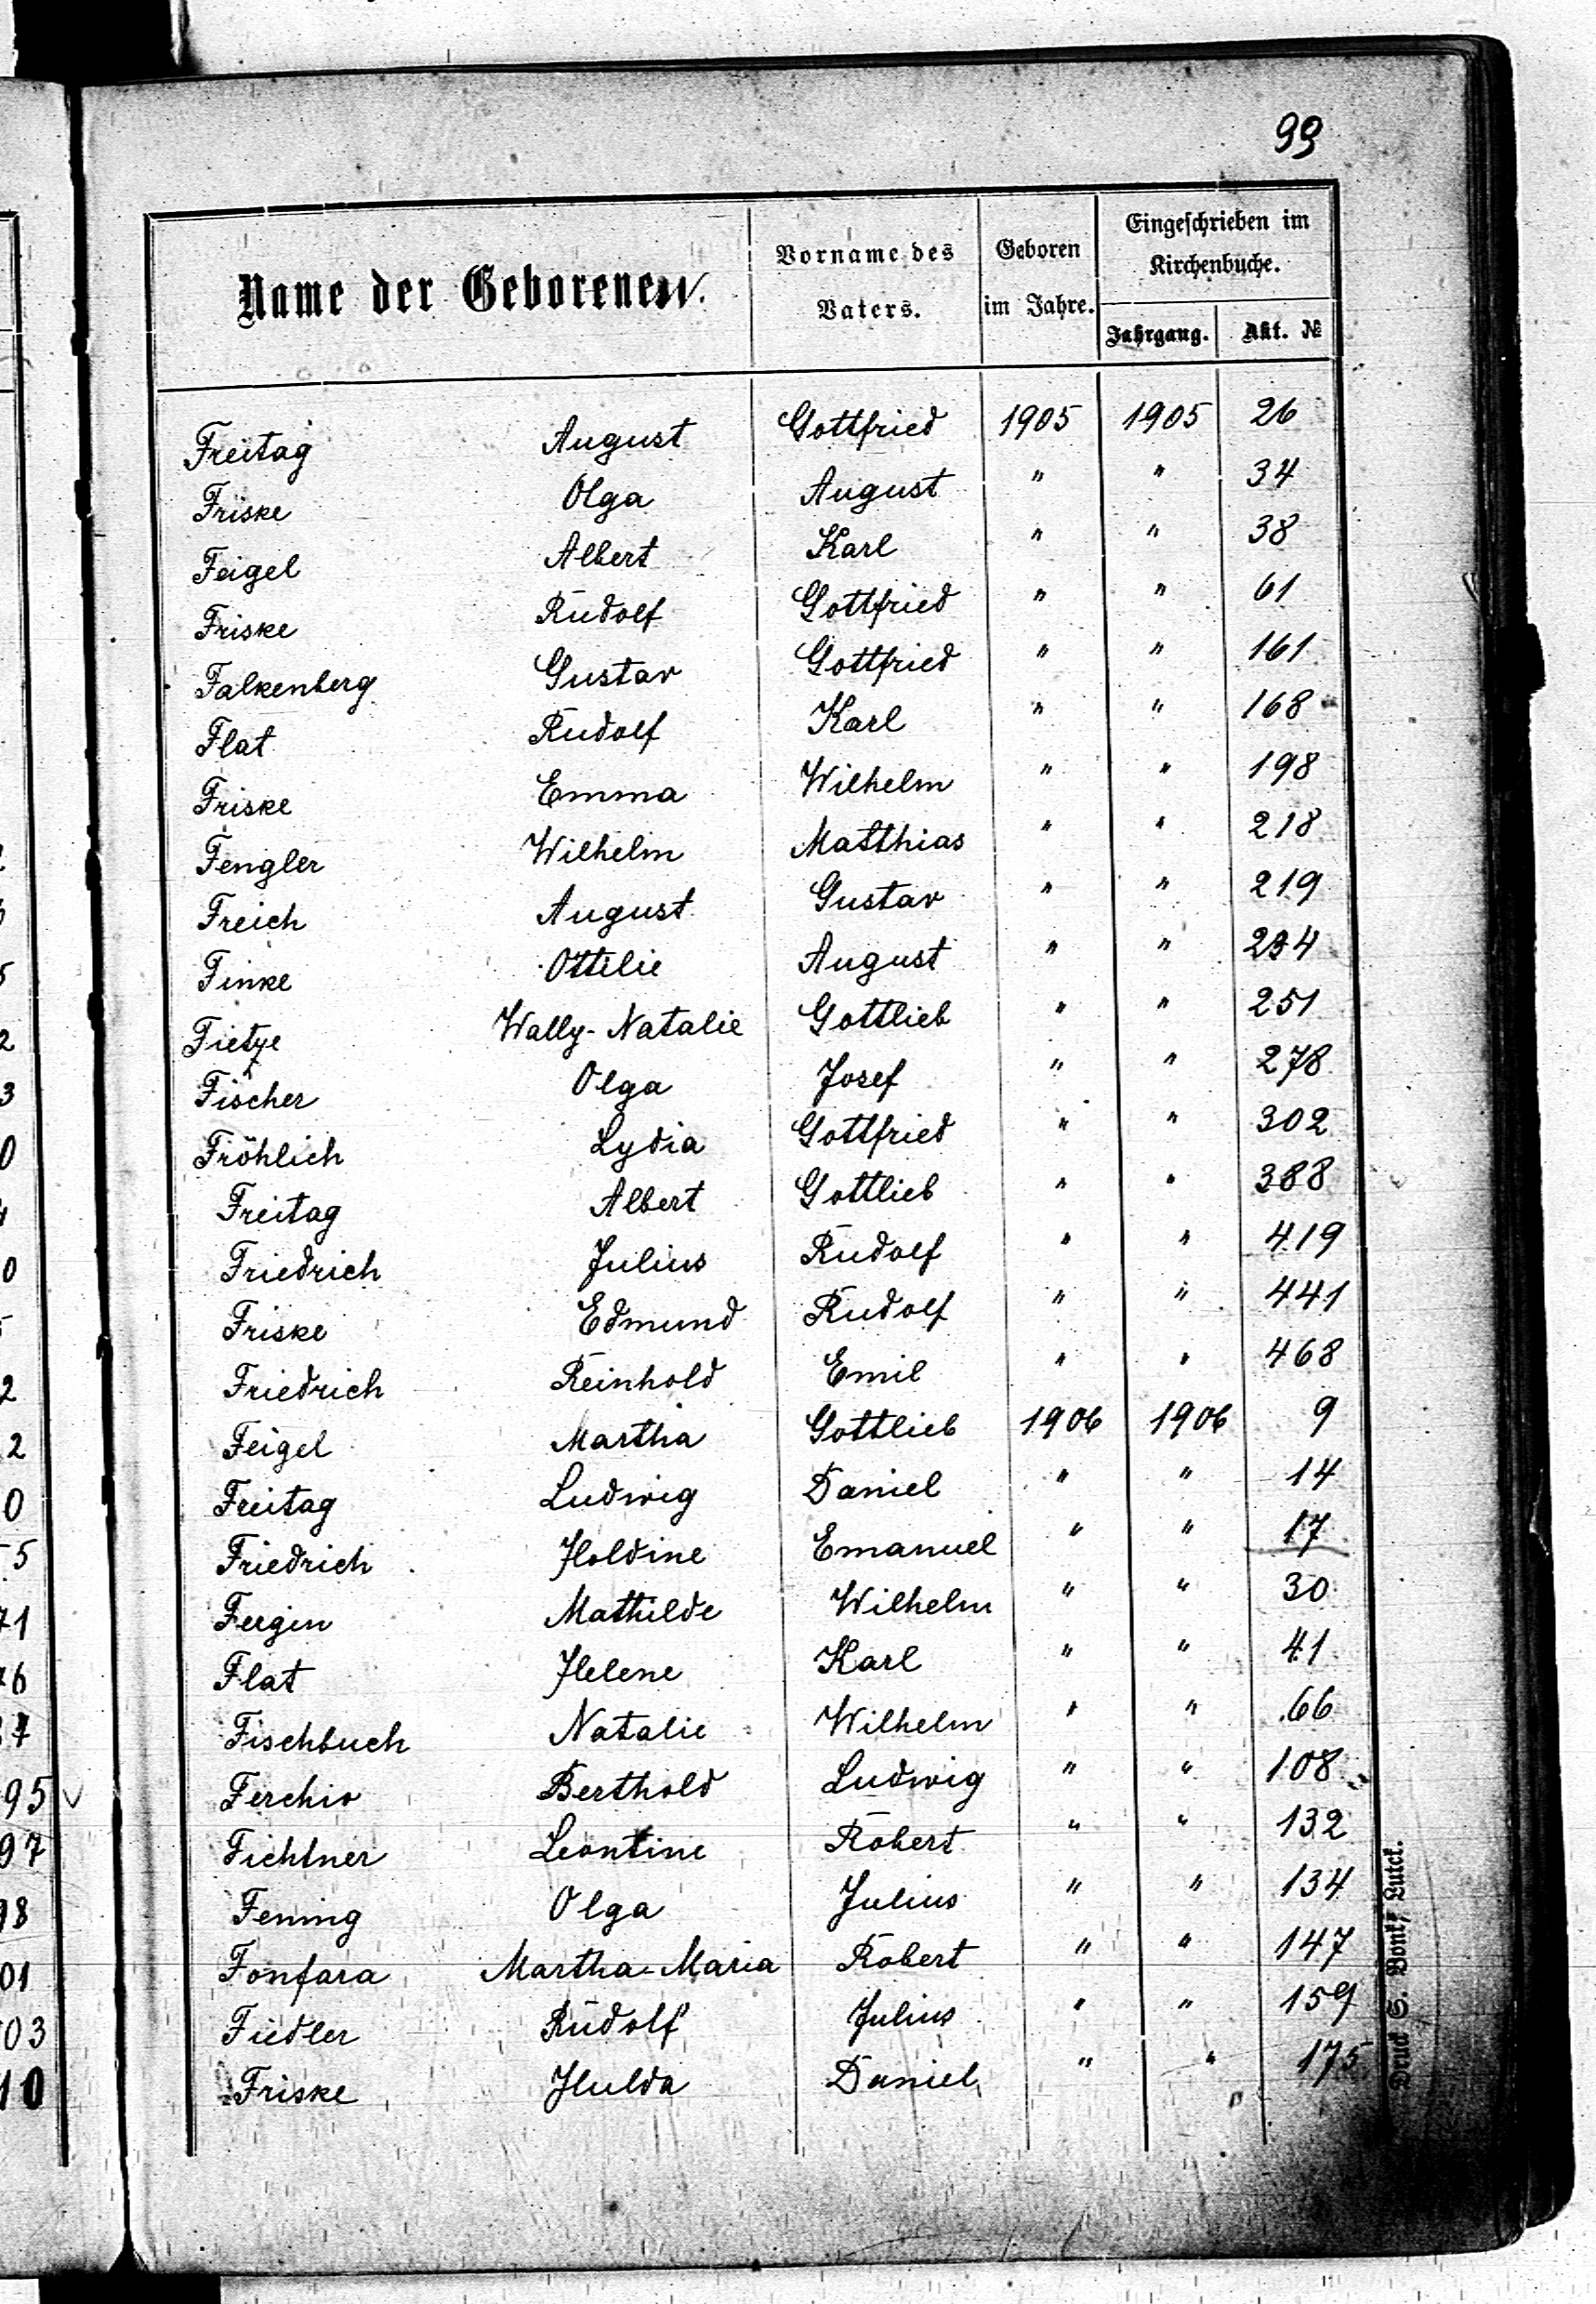 99
Name der Geborenen.
Vorname des Vaters.
Geboren im Jahre.
Eingeschrieben im Kirchenbuche.
Jahrgang.
Akt. №
Freitag August Gottfried 1905 1905 26
Friske Olga August " " 34
Feigel Albert Karl " " 38
Friske Rudolf Gottfried " " 61
Falkenberg Gustav Gottfried " " 161
Flat Rudolf Karl " " 168
Friske Emma Wilhelm " " 198
Fengler Wilhelm Matthias " " 218
Freich August Gustav " " 219
Finke Ottilie August " " 234
Tietze Wally-Natalie Gottlieb " " 251
Fischer Olga Josef " " 278
Fröhlich Lydia Gottfried " " 302
Freitag Albert Gottlieb " " 388
Friedrich Julius Rudolf " " 419
Friske Edmund Rudolf " " 441
Friedrich Reinhold Emil " " 468
Feigel Martha Gottlieb 1906 1906 9
Freitag Ludwig Daniel " " 14
Friedrich Holdine Emanuel " " 17
Fergin Mathilde Wilhelm " " 30
Flat Helene Karl " " 41
Fischbuch Natalie Wilhelm " " 66
Ferchio Berthold Ludwig " " 108
Fichtner Leontine Robert " " 132
Fening Olga Julius " " 134
Fonfara Martha-Maria Robert " " 147
Fiedler Rudolf Julius " " 159
Friske Hulda Daniel " " 175
Druck S. Bonk, Lutck.